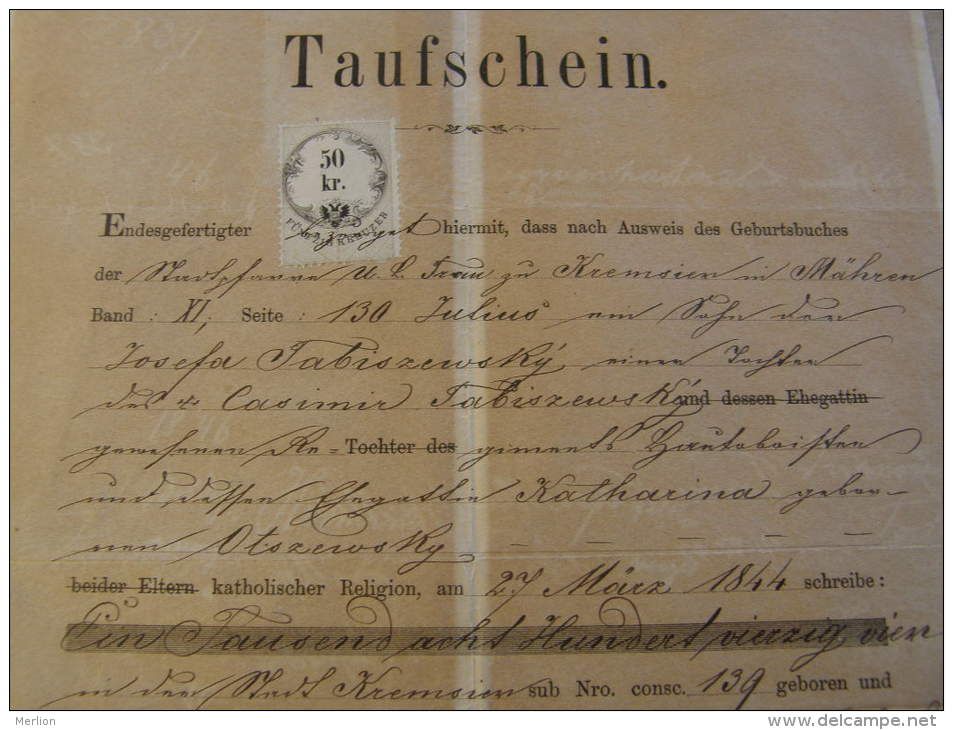 Taufschein.
50
kr.
FÜNFZIG KREUZER
Endesgefertigter bezeuget hiermit, dass nach Ausweis des Geburtsbuches
der Stadtpfarre U. L. Frau zu Kremsier in Mähren
Band : XI; Seite : 130 Julius ein Sohn der
Josefa Tabiszewský, einer Tochter
des Casimir Tabiszewský und dessen Ehegattin
gewesenen Re= Tochter des giments Hautboisten
und dessen Ehegattin Katharina gebor-
nen Otszewsky
beider Eltern katholischer Religion, am 27 März 1844 schreibe :
Ein Tausend acht Hundert vierzig vier
in der Stadt Kremsier sub Nro. consc. 139 geboren und
Merlion
http://www.delcampe.net